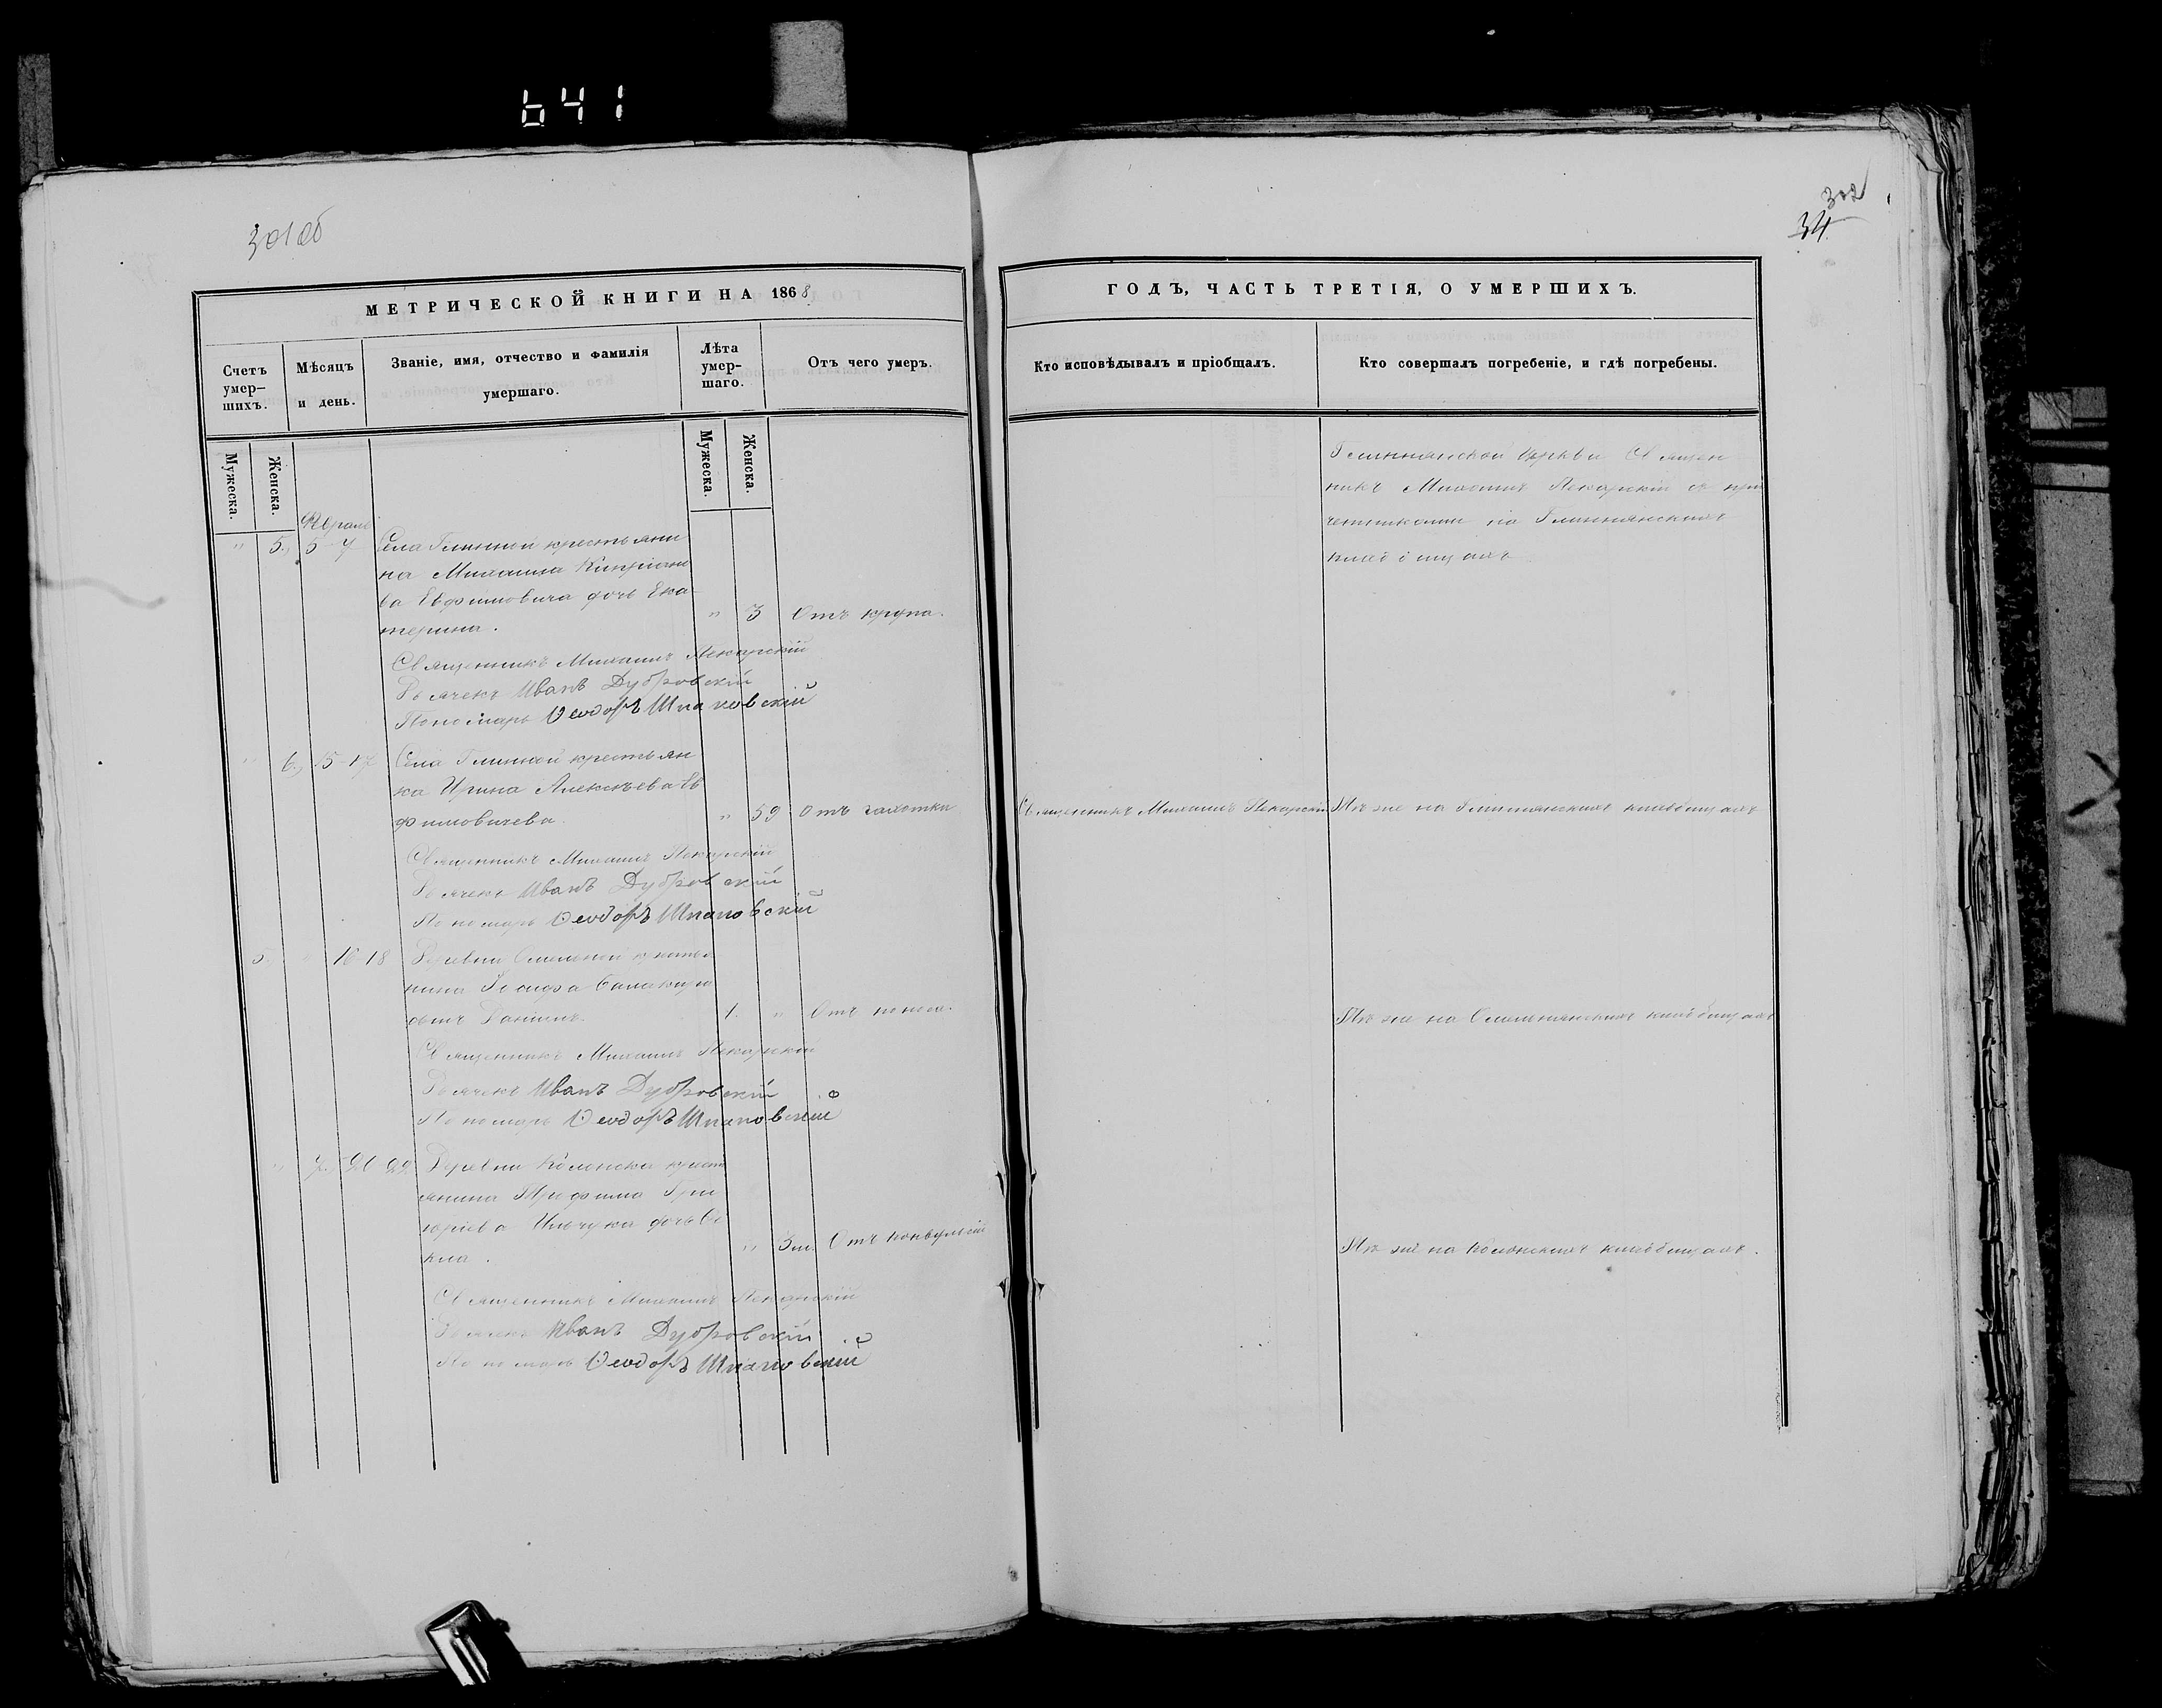 641
301об
302
34
МЕТРИЧЕСКОЙ КНИГИ НА 1868
Счетъ умер-
шихъ.
Мѣсяцъ
и день.
Званіе, имя, отчество и фамилія
умершаго.
Лѣта
умер-
шаго.
Отъ чего умеръ.
Мужеска.
Женска.
Мужеска.
Женска.
" 5. 5 7 Села Глинной крестьяни
на Михаила Кипріано
ва Евфимовича дочь Ека
терина. " 3 Отъ крупа.
Священникъ Михаилъ Пекарскій
Дьячекъ Иванъ Дубровскій
Пономарь Ѳеодоръ Шпаковскій
" 6. 15-17 Села Глинной крестьян
ка Ирина Алексѣева Ев
фимовичева " 59 Отъ чахотки
Священникъ Михаилъ Пекарскій
Дьячекъ Иванъ Дубровскій
Пономарь Ѳеодоръ Шпаковскій
5. " 16-18 Деревни Омельной крестья
нина
сынъ Даніилъ. 1. " Отъ поноса.
Священникъ Михаилъ Пекарскій
Дьячекъ Иванъ Дубровскій
Пономарь Ѳеодоръ Шпаковскій
" 7. Деревни Колонска крест
янина Трофима Гри
горіева дочь Ѳе
кла. " 3 м. Отъ конвульсій
Священникъ Михаилъ Пекарскій
Дьячекъ Иванъ Дубровскій
Пономарь Ѳеодоръ Шпаковскій
ГОДЪ, ЧАСТЬ ТРЕТІЯ, О УМЕРШИХЪ.
Кто исповѣдывалъ и пріобщалъ.
Кто совершалъ погребеніе, и гдѣ погребены.
Глиннянской Церкви Священ
никъ Михаилъ Пекарскій съ при
четниками на Глиннянскихъ
кладбищахъ
Священникъ Михаилъ Пекарскій Тѣ же на Глиннянскихъ кладбищахъ
Тѣ же на Омельнянскихъ кладбищахъ
Тѣ же на Колонскихъ кладбищахъ.